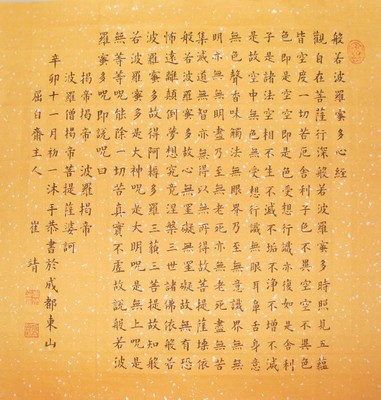 般若波羅蜜多心經
觀自在菩薩行深般若波羅蜜多時照見五蘊
皆空度一切苦厄舍利子色不異空空不異色
色即是空空即是色受想行識亦復如是舍利
子是諸法空相不生不滅不垢不淨不增不減
是故空中無色無受想行識無眼耳鼻舌身意
無色聲香味觸法無眼界乃至無意識界無無
明亦無無明盡乃至無老死亦無老死盡無苦
集滅道無智亦無得以無所得故菩提薩埵依
般若波羅蜜多故心無罣礙無罣礙故無有恐
怖遠離顛倒夢想究竟涅槃三世諸佛依般若
波羅蜜多故得阿耨多羅三藐三菩提故知般
若波羅蜜多是大神呪是大明呪是無上呪是
無等等呪能除一切苦真實不虛故說般若波
羅蜜多呪即說呪曰
揭帝揭帝 波羅揭帝
波羅僧揭帝菩提薩婆訶
辛卯十一月初一沐手恭書於成都東山
屈白齋主人 崔靖